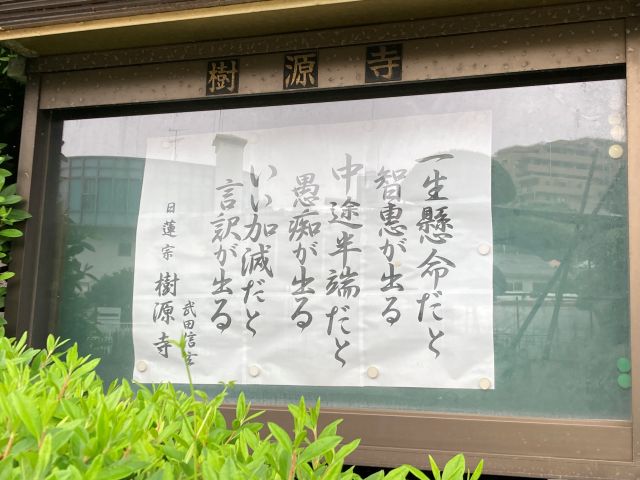 樹源寺
一生懸命だと
智恵が出る
中途半端だと
愚痴が出る
いい加減だと
言訳が出る
武田信玄
日蓮宗 樹源寺